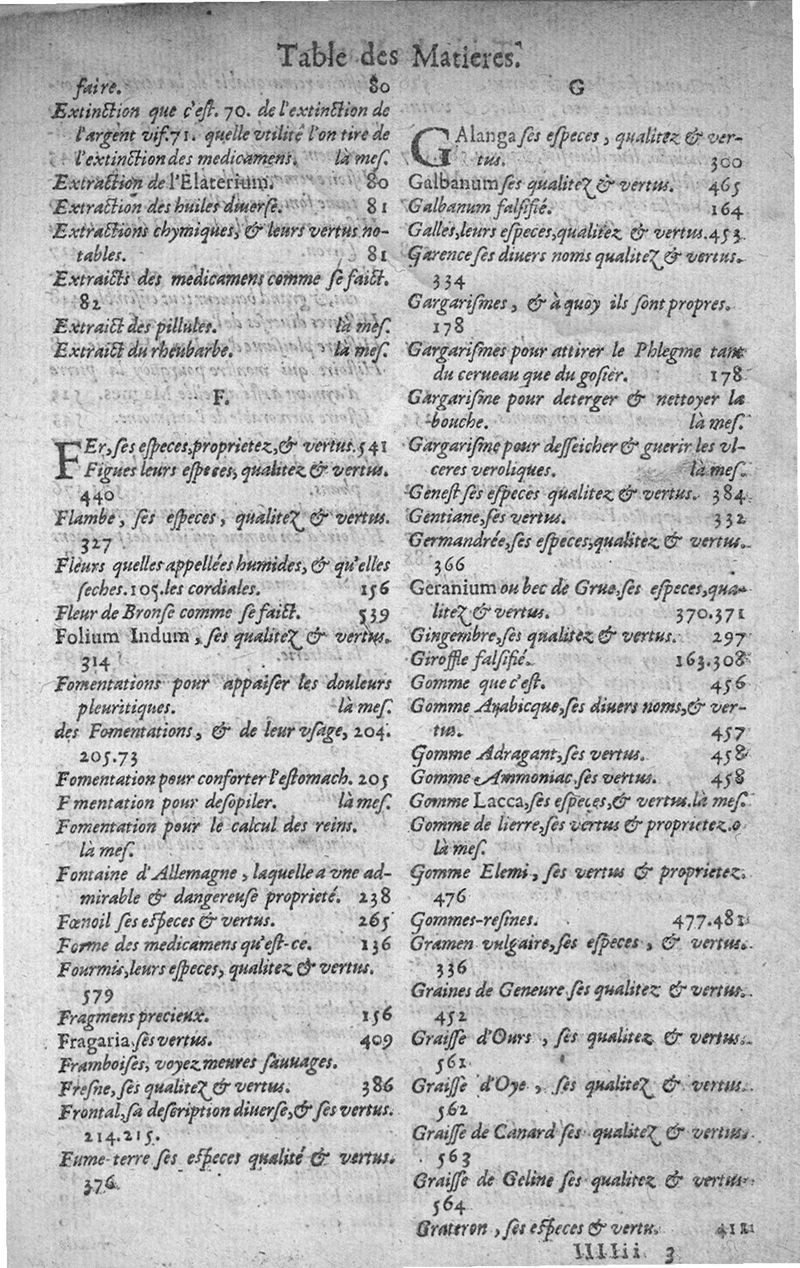 Table des Matieres.
faire. 80
Extinction que c'est. 70. de l'extinction de
l'argent vif. 71. quelle vtilité l'on tire de
l'extinction des medicamens. là mes.
Extraction de l'Elaterium. 80
Extraction des huiles diuerse. 81
Extractions chymiques, & leurs vertus no-
tables. 81
Extraicts des medicamens comme se faict.
82
Extraict des pillules. là mes.
Extraict du rheubarbe. là mes.
F.
FEr, ses especes, proprietez, & vertus. 541
Figues leurs especes, qualitez & vertus.
440
Flambe, ses especes, qualitez & vertus.
327
Fleurs quelles appellées humides, & qu'elles
seches. 105. les cordiales. 156
Fleur de Bronse comme se faict. 539
Folium Indum, ses qualitez & vertus.
314
Fomentations pour appaiser les douleurs
pleuritiques. là mes.
des Fomentations, & de leur vsage, 204.
205.73
Fomentation pour conforter l'estomach. 205
F mentation pour desopiler. là mes.
Fomentation pour le calcul des reins.
là mes.
Fontaine d'Allemagne, laquelle a vne ad-
mirable & dangereuse proprieté. 238
Fœnoil ses especes & vertus. 265
Forme des medicamens qu'est-ce. 136
Fourmis, leurs especes, qualitez & vertus.
579
Fragmens precieux. 156
Fragaria, ses vertus. 409
Framboises, voyez meures sauuages.
Fresne, ses qualitez & vertus. 386
Frontal, sa description diuerse, & ses vertus.
214.215.
Fume-terre ses especes qualité & vertus.
376
G
GAlanga ses especes, qualitez & ver-
tus. 300
Galbanum ses qualitez & vertus. 465
Galbanum falsifié. 164
Galles, leurs especes, qualitez & vertus. 453
Garence ses diuers noms qualitez & vertus.
334
Gargarismes, & à quoy ils sont propres.
178
Gargarismes pour attirer le Phlegme tant
du cerueau que du gosier. 178
Gargarisme pour deterger & nettoyer la
bouche. là mes.
Gargarisme pour desseicher & guerir les vl-
ceres veroliques. là mes.
Genest ses especes qualitez & vertus. 384
Gentiane, ses vertus. 332
Germandrée, ses especes, qualitez & vertus.
366
Geranium ou bec de Grue, ses especes, qua-
litez & vertus. 370.371
Gingembre, ses qualitez & vertus. 297
Giroffle falsifié. 163.308
Gomme que c'est. 456
Gomme Arabicque, ses diuers noms, & ver-
tus. 457
Gomme Adragant, ses vertus. 458
Gomme Ammoniac, ses vertus. 458
Gomme Lacca, ses especes, & vertus. là mes.
Gomme de lierre, ses vertus & proprietez.
là mes.
Gomme Elemi, ses vertus & proprietez.
476
Gommes-resines. 477.481
Gramen vulgaire, ses especes, & vertus.
336
Graines de Geneure ses qualitez & vertus.
452
Graisse d'Ours, ses qualitez & vertus.
561
Graisse d'Oye, ses qualitez & vertus.
562
Graisse de Canard ses qualitez & vertus.
563
Graisse de Geline ses qualitez & vertus
564
Grateron, ses especes & vertu.
IIIIii 3